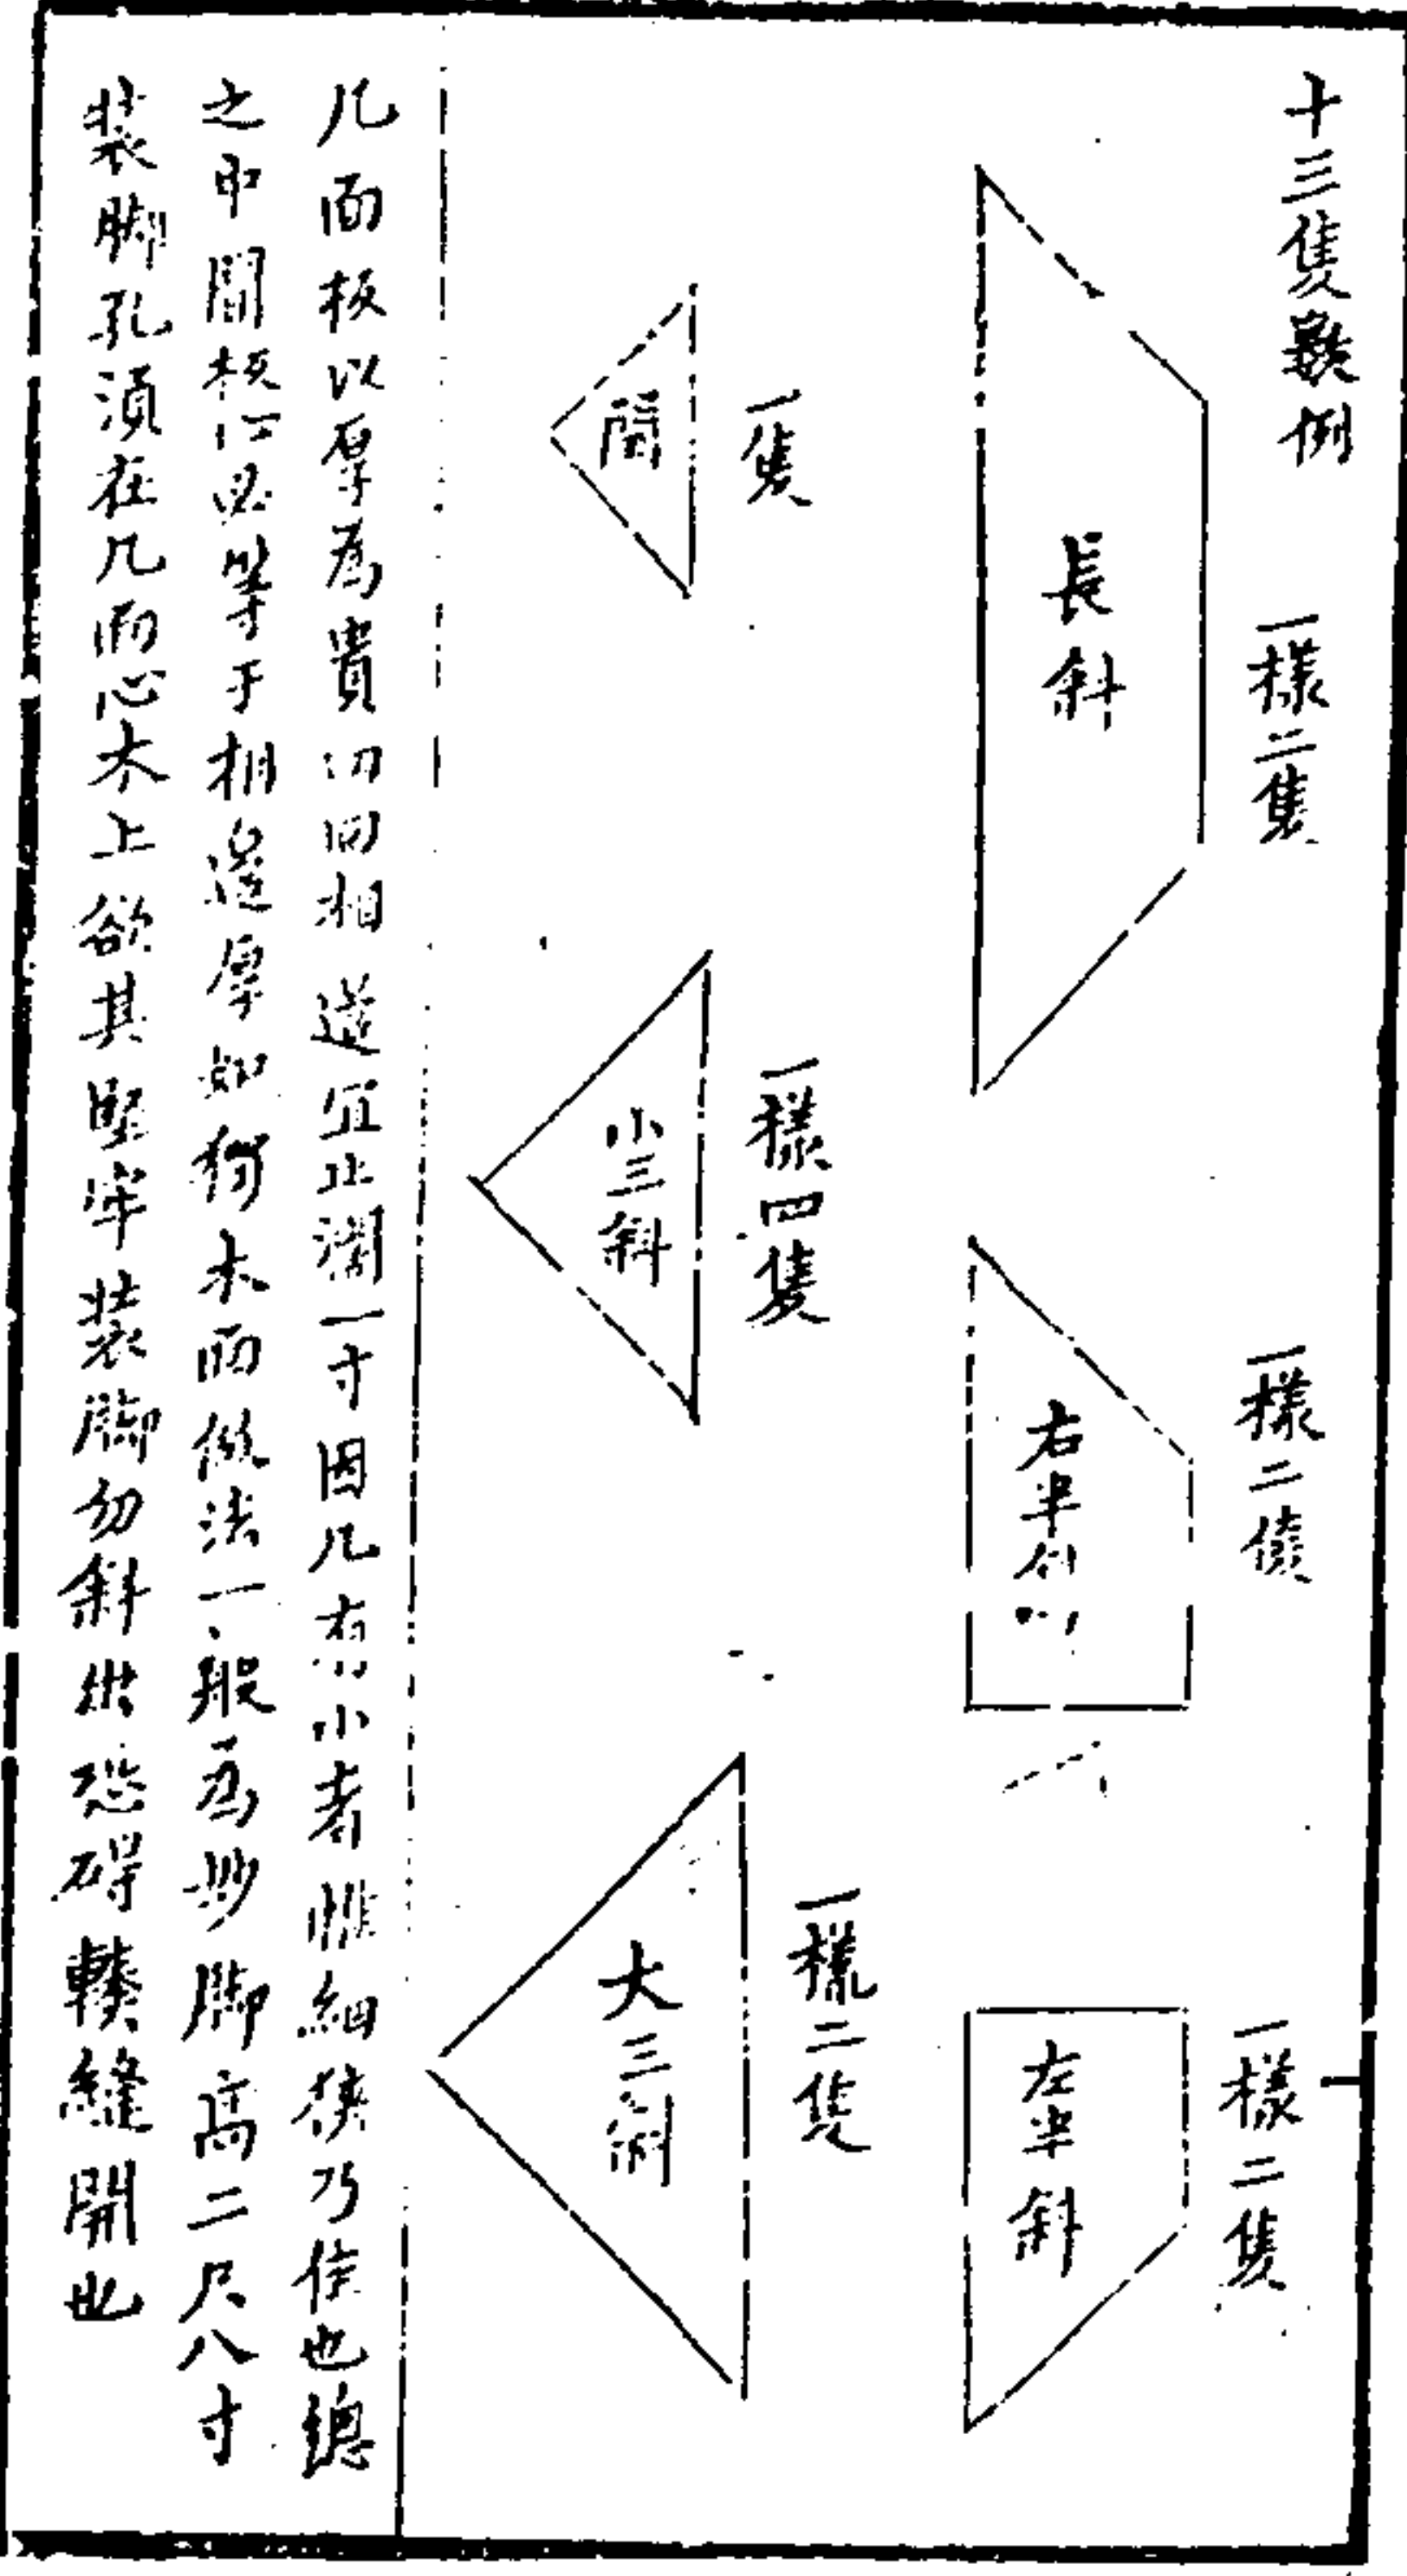 十三隻數例
一樣二隻
長斜
一樣二隻
右半
一樣二隻
左半斜
一隻
閏
一樣四隻
小三斜
一樣二隻
大三斜
几面板以厚為貴四面相邊宜止濶一寸因几有小者惟細狹乃佳也總
之中間板心必等于相邊厚如獨木面做法一般為妙脚高二尺八寸
装脚孔須在几面心木上欲其堅牢装脚勿斜出恐碍輳縫開也